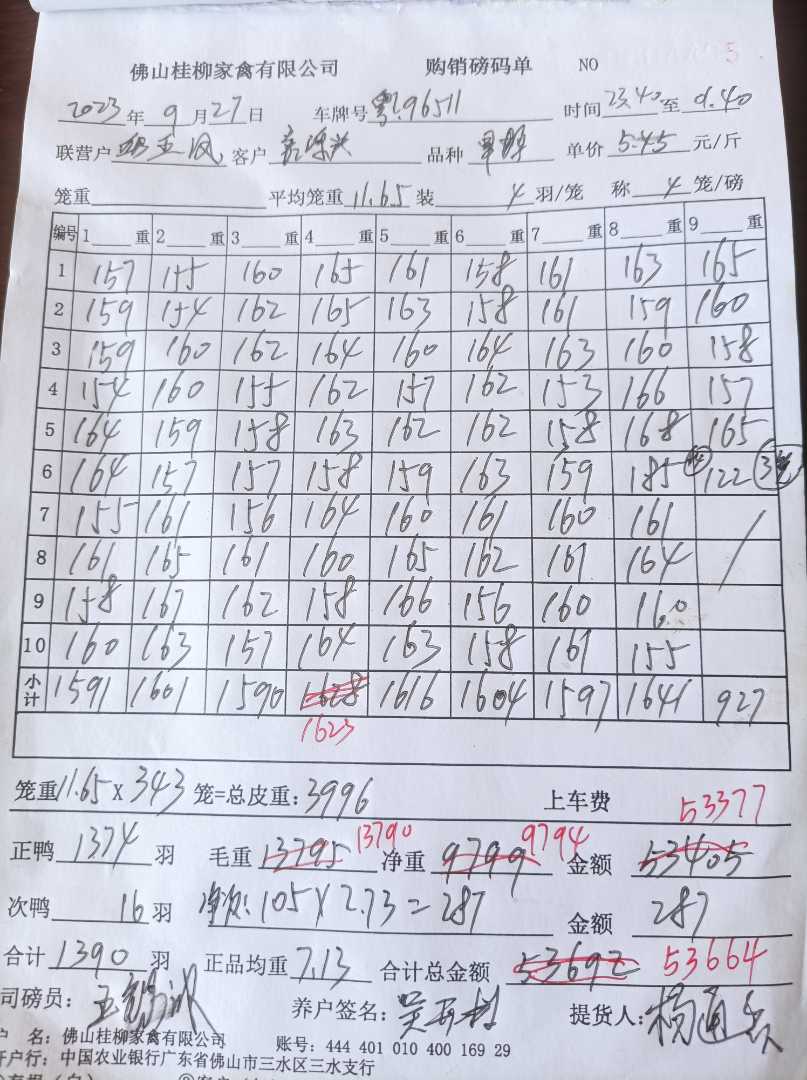 佛山桂柳家禽有限公司 购销磅码单 NO
2023年 9月27日 车牌号粤.96511 时间23.40至0.40
联营户 凤 客户 品种 单价5.45元/斤
笼重 平均笼重11.65装4羽/笼 称4笼/磅
编号 1 重 2 重 3 重 4 重 5 重 6 重 7 重 8 重 9 重
1 157 155 160 165 161 158 161 163 165
2 159 154 162 165 163 158 161 159 160
3 159 160 162 164 160 164 163 160 158
4 154 160 155 162 157 162 153 166 157
5 164 159 158 163 162 162 158 168 165
6 164 157 157 158 159 163 159 185 122
7 155 161 156 164 160 161 160 161
8 161 165 161 160 165 162 161 164
9 158 167 162 158 166 156 160 16.0
10 160 163 157 164 163 158 161 155
小计 1591 1601 1590 1628 1616 1604 1597 1641 927
1623
笼重11.65X343笼=总皮重:3996 上车费 53377
正鸭1374羽 毛重13795 13790 净重9799 9794 金额53405
次鸭16羽 净次:105X2.73=287 金额287
合计1390羽 正品均重7.13 合计总金额53692 53664
司磅员: 养户签名: 提货人:
户 名:佛山桂柳家禽有限公司 账号:444 401 010 400 169 29
开户行:中国农业银行广东省佛山市三水区三水支行